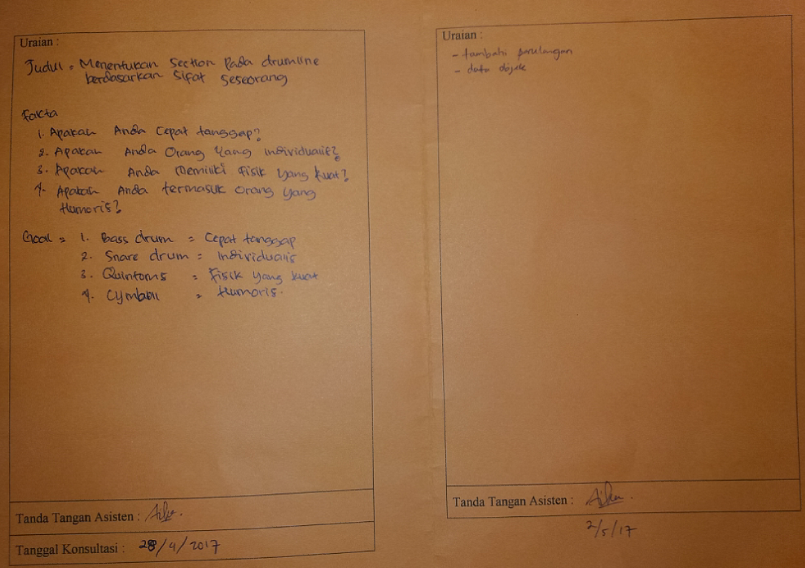 Uraian :
Judul = Menentukan Section Pada drumline
berdasarkan Sifat Seseorang
Fakta
1. Apakah Anda Cepat tanggap?
2. Apakah Anda Orang Yang Individualis?
3. Apakah Anda Memiliki Fisik Yang kuat?
4. Apakah Anda termasuk Orang yang
Humoris?
Goal = 1. Bass drum = Cepat tanggap
2. Snare drum = Individualis
3. Quintoms = Fisik Yang kuat
4. Cymbal = Humoris.
Tanda Tangan Asisten :
Tanggal Konsultasi : 28/4/2017
Uraian :
- tambahi perulangan
- data objek
Tanda Tangan Asisten :
2/5/17